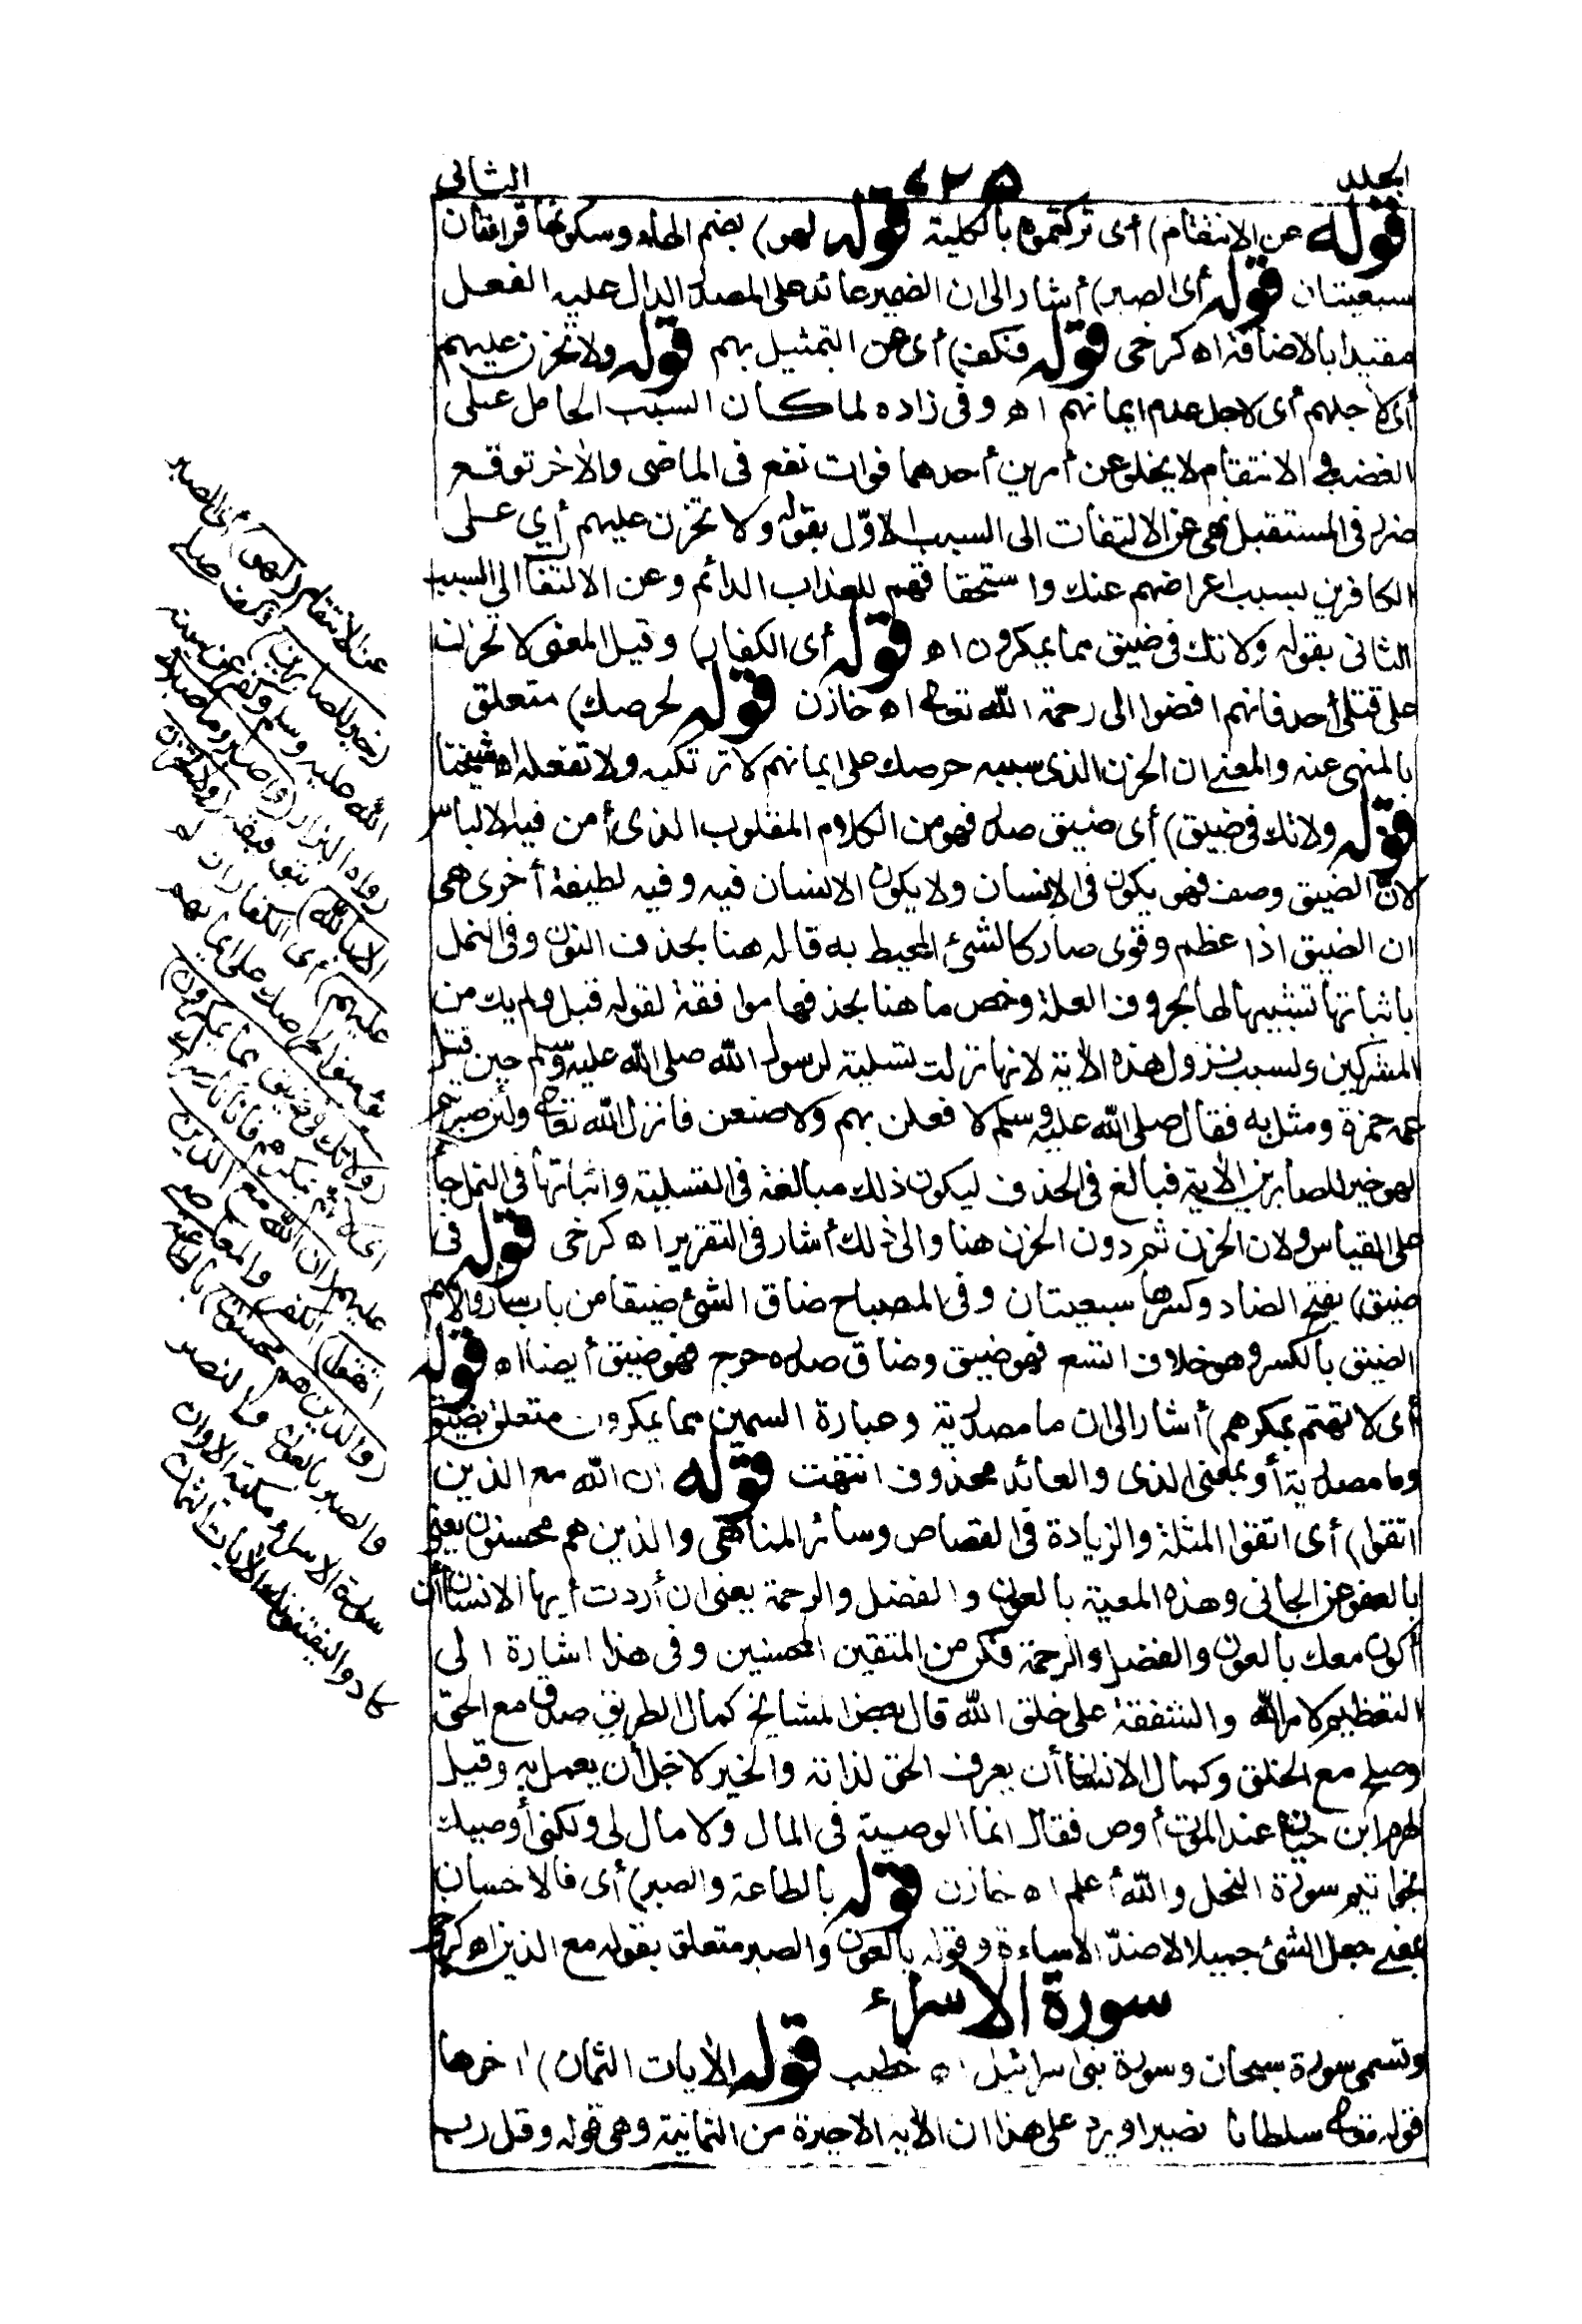 المجلد
٤٢٥
الثانى
قوله عن الانتقام) أى تركتموه بالكلية قوله لهو) بضم الهاء وسكونها قراءتان
سبعيتان قوله أى الصبر) أشار الى ان الضمير عائد على المصدر الدال عليه الفعل
مقيدا بالاضافة اه كرخى قوله فنكف) أى عن التمثيل بهم قوله ولا تحزن عليهم
أى لاجلهم أى لاجل عدم ايمانهم اه وفى زاده لما كان السبب الحامل على
الغضب فى الانتقام لا يخلو عن أمرين أحدهما فوات نفع فى الماضى والاٰخر توقع
ضرر فى المستقبل نهى عن الالتفات الى السبب الاوّل بقوله ولا تحزن عليهم أي على
الكافرين بسبب اعراضهم عنك واستحقاقهم للعذاب الدائم وعن الالتفا الى السبب
الثانى بقوله ولا تك فى ضيق مما يمكرون اه قوله أى الكفار) وقيل المعنى لا تحزن
على قتلى أحد فانهم افضوا الى رحمة الله تعالى اه خازن قوله لحرصك) متعلق
بالمنهى عنه والمعنى ان الحزن الذى سببه حرصك على ايمانهم لا ترتكبه ولا تفعله اه شيخنا
قوله ولا تك فى ضيق) أى ضيق صدر فهو من الكلام المقلوب الذى أمن فيه الالباس
لانّ الضيق وصف فهو يكون فى الانسان ولا يكون الانسان فيه وفيه لطيفة أخرى هى
ان الضيق اذا عظم وقوى صار كالشئ المحيط به قاله هنا بحذف النون وفى النمل
باثباتها تشبيها لها بحروف العلة وخص ما هنا بحذفها موافقة لقوله قبل ولم يك من
المشركين ولسبب نزول هذه الاٰية لانها نزلت تسلية لرسول الله صلى الله عليه وسلم حين قتل
عمه حمزة ومثل به فقال صلى الله عليه وسلم لافعلن بهم ولاصنعن فانزل الله تعالى ولئن صبرتم
لهو خير للصابرين الاٰية فبالغ فى الحذف ليكون ذلك مبالغة فى التسلية واثباتها فى النمل جا
على القياس ولان الحزن ثم دون الحزن هنا والى ذلك أشار فى التقرير اه كرخى قوله فى
ضيق) بفتح الضاد وكسرها سبعيتان وفى المصباح ضاق الشئ ضيقا من باب سار والاسم
الضيق بالكسر وهو خلاف اتسع فهو ضيق وضاق صدره حرج فهو ضيق أيضا اه قوله
أى لا تهتم بمكرهم) أشار الى ان ما مصدرية وعبارة السمين مما يمكرون متعلق بضيق
وما مصدرية أو بمعنى الذى والعائد محذوف انتهت قوله ان الله مع الذين
اتقوا) أى اتقوا المثلة والزيادة فى القصاص وسائر المناهى والذين هم محسنون يعنى
بالعفو عن الجانى وهذه المعية بالعون والفضل والرحمة يعنى ان أردت أيها الانسان أن
أكون معك بالعون والفضل والرحمة فكن من المتقين المحسنين وفى هذا اشارة الى
التعظيم لامر الله والشفقة على خلق الله قال بعض المشايخ كمال الطريق صدق مع الحق
وصلح مع الخلق وكمال الانسان أن يعرف الحق لذاته والخير لاجل أن يعمل به وقيل
لهرم ابن حيان عند الموت أوص فقال انما الوصية فى المال ولا مال لى ولكنى أوصيك
بخواتيم سورة النحل والله أعلم اه خازن قوله بالطاعة والصبر) أى فالاحسان
بمعنى جعل الشئ جميلا لا ضدّ الاساءة وقوله بالعون والصبر متعلق بقوله مع الذين اه كرخى
سورة الاسراء
وتسمى سورة سبحان وسورة بنى اسرائيل اه خطيب قوله الاٰيات الثمان) اٰخرها
قوله تعالى سلطانا نصيرا ويرد على هذا ان الاٰية الاخيرة من الثمانية وهى قوله وقل رب
عن الانتقام (لهو) أى الصبر
(خير للصابرين) فكف صلى
الله عليه وسلم وكفر عن يمينه
رواه البزار (واصبر وما صبرك
الا بالله) بتوفيقه (ولا تحزن
عليهم) أى الكفار ان لم
يؤمنوا لحرصك على ايمانهم
(ولا تك فى ضيق مما يمكرون)
أى لا تهتم بمكرهم فانا ناصرك
عليهم (ان الله مع الذين
اتقوا) الكفر والمعاصى
(والذين هم محسنون) بالطاعة
والصبر بالعون والنصر
سورة الاسراء مكية الا وان
كادوا ليفتنونك الاٰيات الثمان